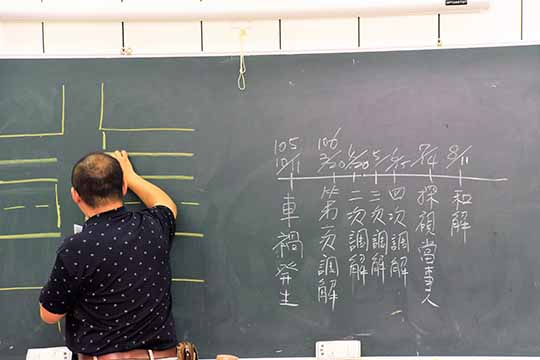 105
車禍發生
106
3/20
第一次調解
4/20
二次調解
三次調解
四次調解
7/4
探視當事人
8/11
和解